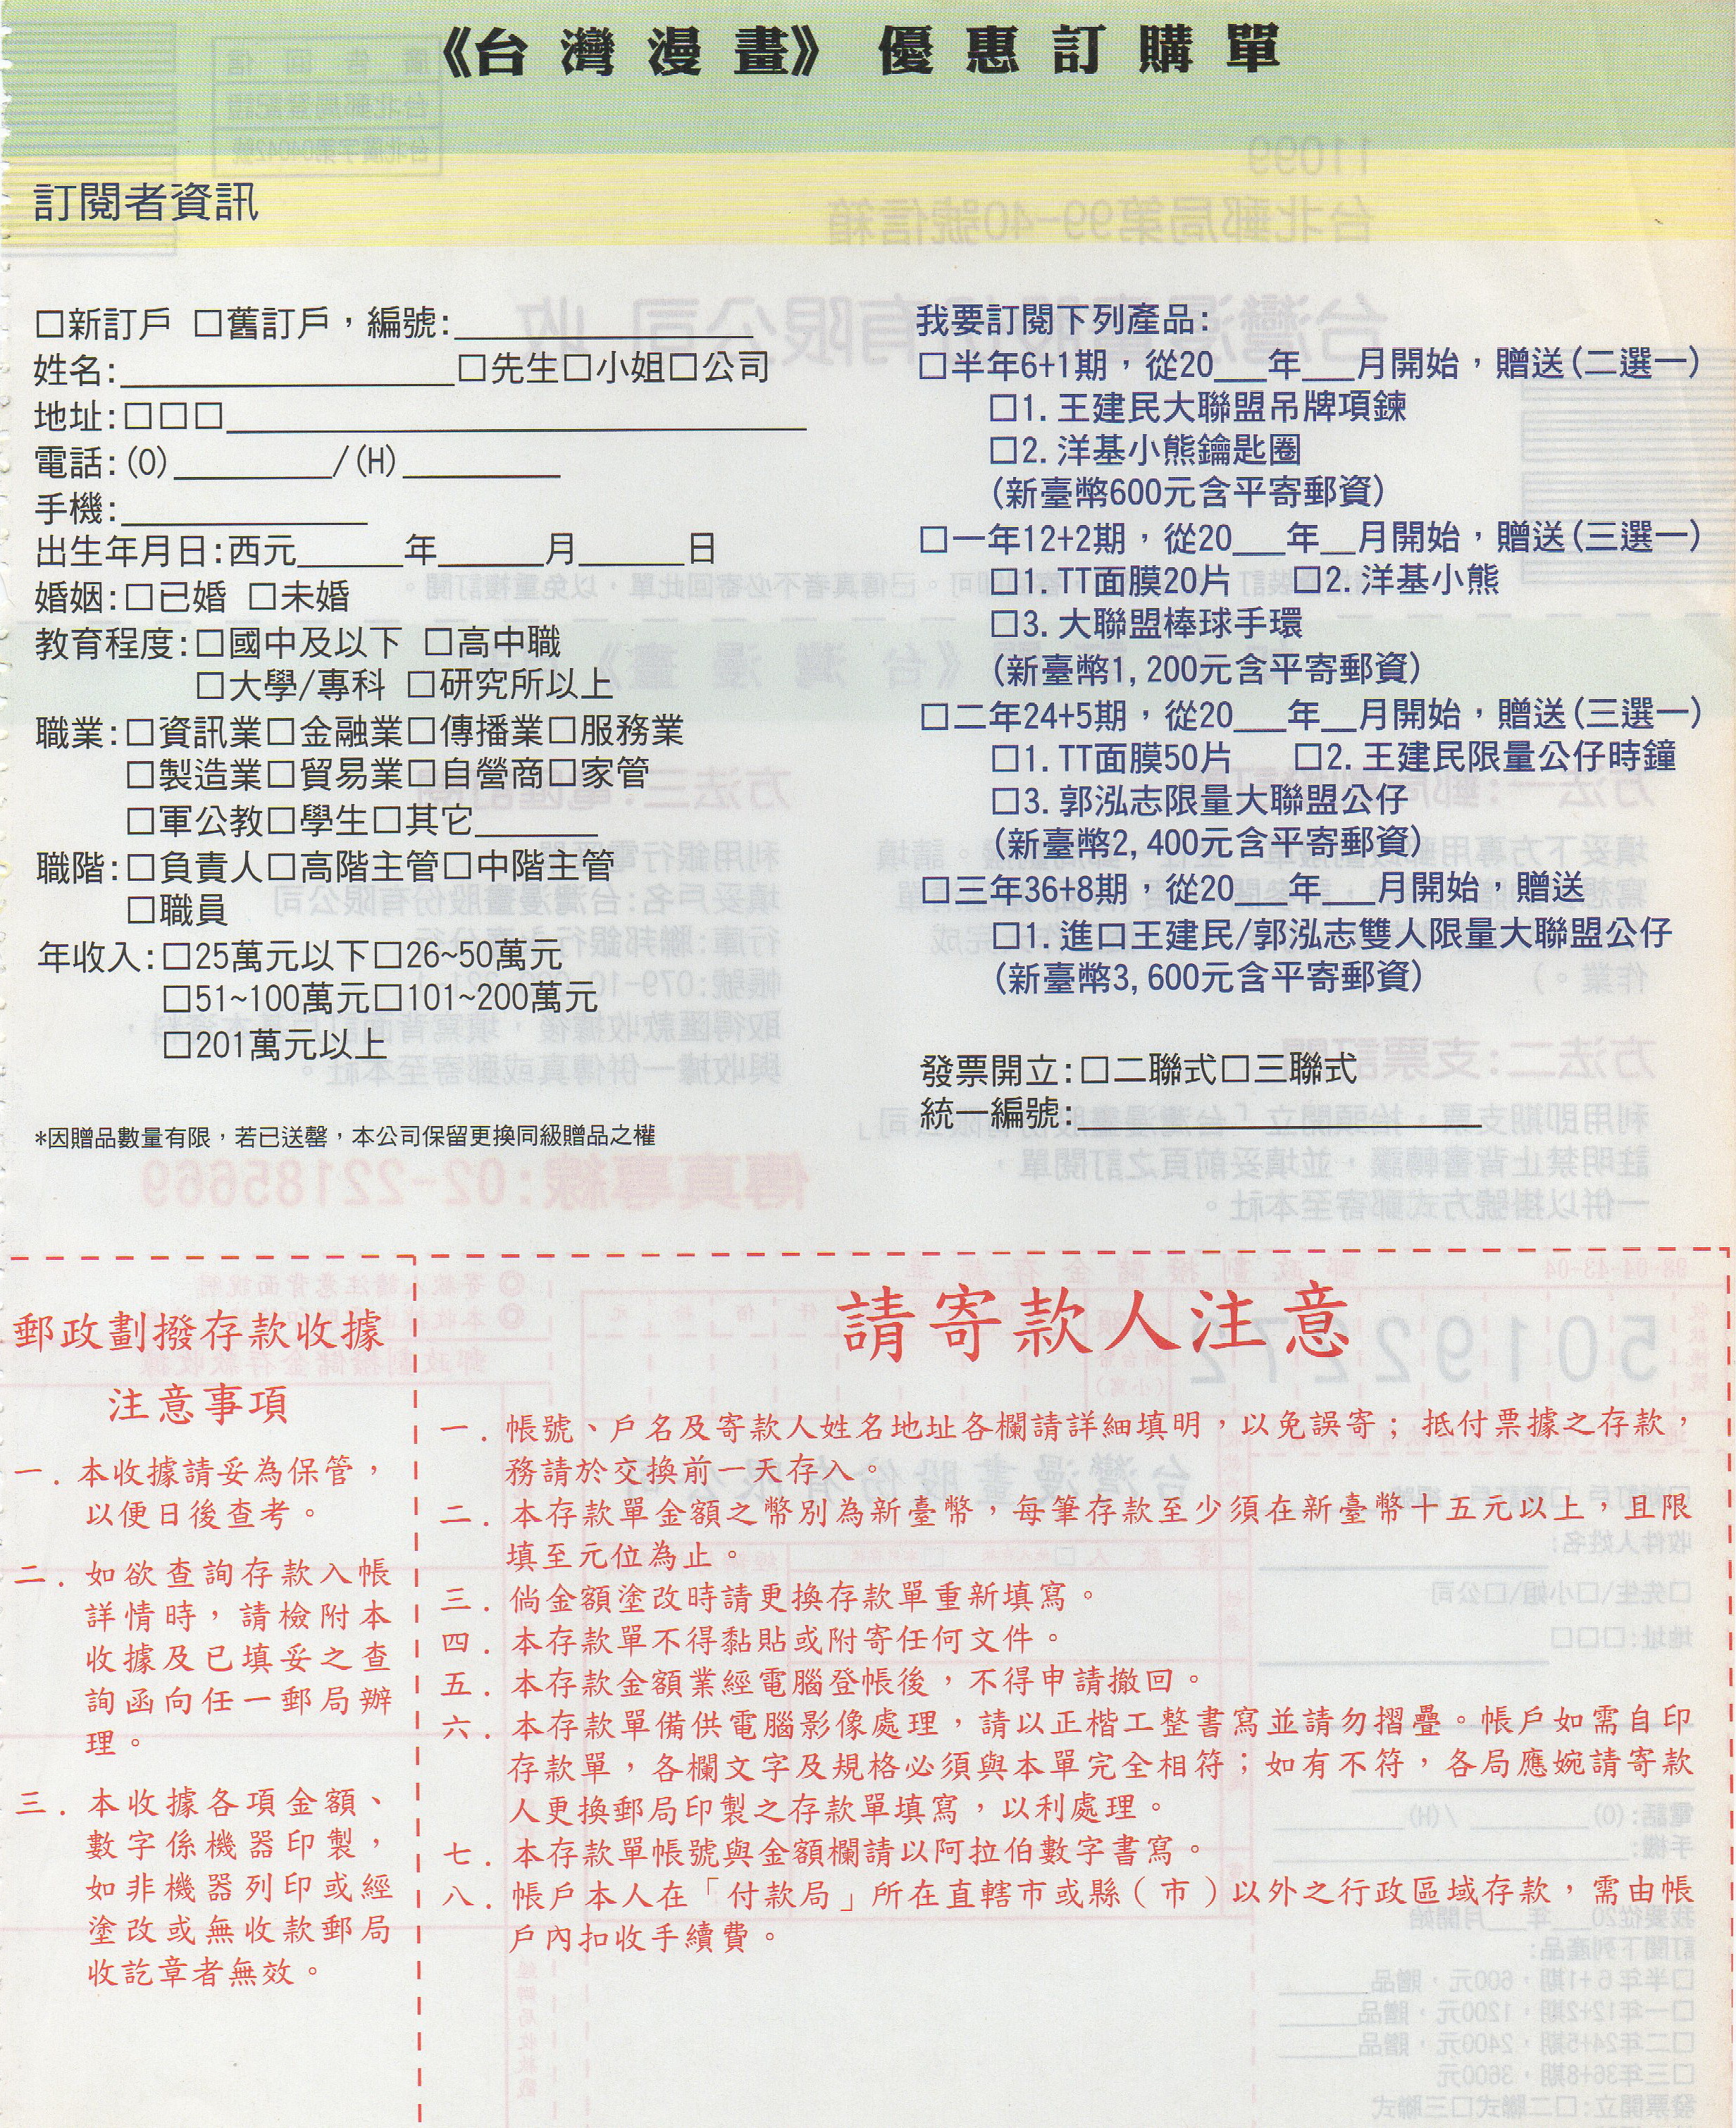 《台灣漫畫》優惠訂購單
訂閱者資訊
□新訂戶 □舊訂戶，編號:
姓名: □先生□小姐□公司
地址:□□□
電話:(O) /(H)
手機:
出生年月日:西元 年 月 日
婚姻:□已婚 □未婚
教育程度:□國中及以下 □高中職
□大學/專科 □研究所以上
職業:□資訊業□金融業□傳播業□服務業
□製造業□貿易業□自營商□家管
□軍公教□學生□其它
職階:□負責人□高階主管□中階主管
□職員
年收入:□25萬元以下□26~50萬元
□51~100萬元□101~200萬元
□201萬元以上
*因贈品數量有限，若已送罄，本公司保留更換同級贈品之權
我要訂閱下列產品:
□半年6+1期，從20__年__月開始，贈送(二選一)
□1.王建民大聯盟吊牌項鍊
□2.洋基小熊鑰匙圈
(新臺幣600元含平寄郵資)
□一年12+2期，從20__年__月開始，贈送(三選一)
□1.TT面膜20片 □2.洋基小熊
□3.大聯盟棒球手環
(新臺幣1,200元含平寄郵資)
□二年24+5期，從20__年__月開始，贈送(三選一)
□1.TT面膜50片 □2.王建民限量公仔時鐘
□3.郭泓志限量大聯盟公仔
(新臺幣2,400元含平寄郵資)
□三年36+8期，從20__年__月開始，贈送
□1.進口王建民/郭泓志雙人限量大聯盟公仔
(新臺幣3,600元含平寄郵資)
發票開立:□二聯式□三聯式
統一編號:
郵政劃撥存款收據
注意事項
一．本收據請妥為保管，
以便日後查考。
二．如欲查詢存款入帳
詳情時，請檢附本
收據及已填妥之查
詢函向任一郵局辦
理。
三．本收據各項金額、
數字係機器印製，
如非機器列印或經
塗改或無收款郵局
收訖章者無效。
請寄款人注意
一．帳號、戶名及寄款人姓名地址各欄請詳細填明，以免誤寄；抵付票據之存款，
務請於交換前一天存入。
二．本存款單金額之幣別為新臺幣，每筆存款至少須在新臺幣十五元以上，且限
填至元位為止。
三．倘金額塗改時請更換存款單重新填寫。
四．本存款單不得黏貼或附寄任何文件。
五．本存款金額業經電腦登帳後，不得申請撤回。
六．本存款單備供電腦影像處理，請以正楷工整書寫並請勿摺疊。帳戶如需自印
存款單，各欄文字及規格必須與本單完全相符；如有不符，各局應婉請寄款
人更換郵局印製之存款單填寫，以利處理。
七．本存款單帳號與金額欄請以阿拉伯數字書寫。
八．帳戶本人在「付款局」所在直轄市或縣（市）以外之行政區域存款，需由帳
戶內扣收手續費。